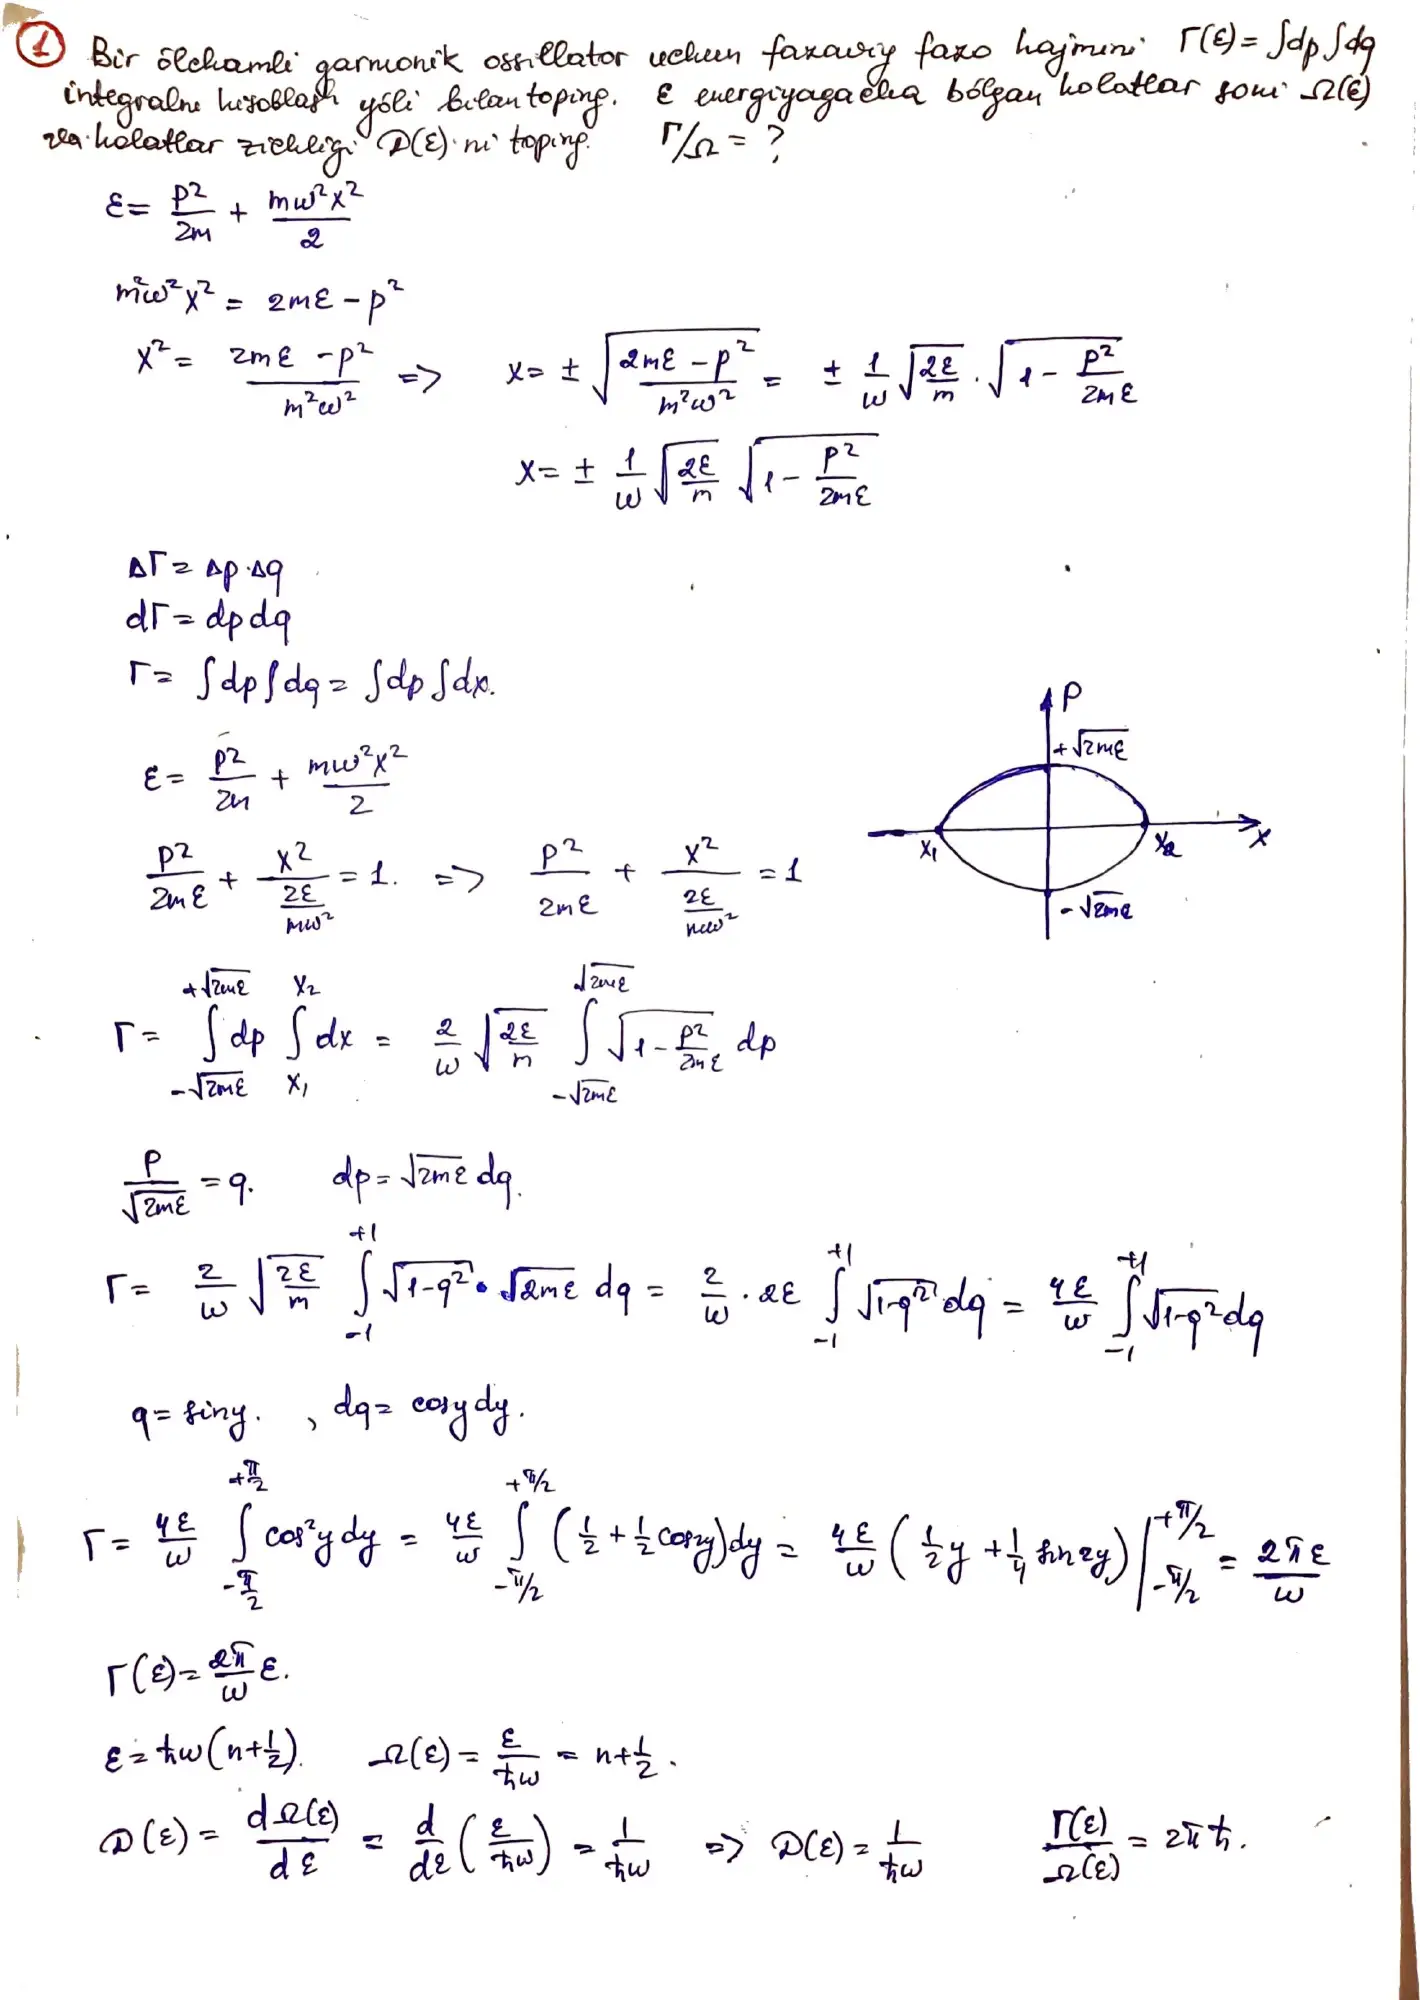 1 Bir ölchamli garmonik ossillator uchun fazaviy fazo hajmini Γ(ε) = ∫dp∫dq
integralni hisoblash yöli bilan toping. ε energiyagacha bölgan holatlar soni Ω(ε)
va holatlar zichligi D(ε) ni toping. Γ/Ω = ?
ε = p²/2m + mω²x²/2
m²ω²x² = 2mε − p²
x² = (2mε − p²)/(m²ω²) => x = ± √((2mε − p²)/(m²ω²)) = ± 1/ω √(2ε/m) · √(1 − p²/2mε)
x = ± 1/ω √(2ε/m) √(1 − p²/2mε)
ΔΓ = Δp·Δq
dΓ = dp dq
Γ = ∫dp∫dq = ∫dp∫dx.
p
+√2mε
x₁ x₂ x
−√2mε
ε = p²/2m + mω²x²/2
p²/2mε + x²/(2ε/mω²) = 1. => p²/2mε + x²/(2ε/mω²) = 1
Γ = ∫_{−√2mε}^{+√2mε} dp ∫_{x₁}^{x₂} dx = 2/ω √(2ε/m) ∫_{−√2mε}^{√2mε} √(1 − p²/2mε) dp
p/√2mε = q. dp = √2mε dq.
Γ = 2/ω √(2ε/m) ∫_{−1}^{+1} √(1−q²) · √2mε dq = 2/ω · 2ε ∫_{−1}^{+1} √(1−q²) dq = 4ε/ω ∫_{−1}^{+1} √(1−q²) dq
q = siny. , dq = cosy dy.
Γ = 4ε/ω ∫_{−π/2}^{+π/2} cos²y dy = 4ε/ω ∫_{−π/2}^{+π/2} (1/2 + 1/2 cos2y) dy = 4ε/ω (1/2 y + 1/4 sin2y) |_{−π/2}^{+π/2} = 2πε/ω
Γ(ε) = 2π/ω ε.
ε = ħω(n+1/2). Ω(ε) = ε/ħω = n+1/2.
D(ε) = dΩ(ε)/dε = d/dε (ε/ħω) = 1/ħω => D(ε) = 1/ħω Γ(ε)/Ω(ε) = 2πħ.